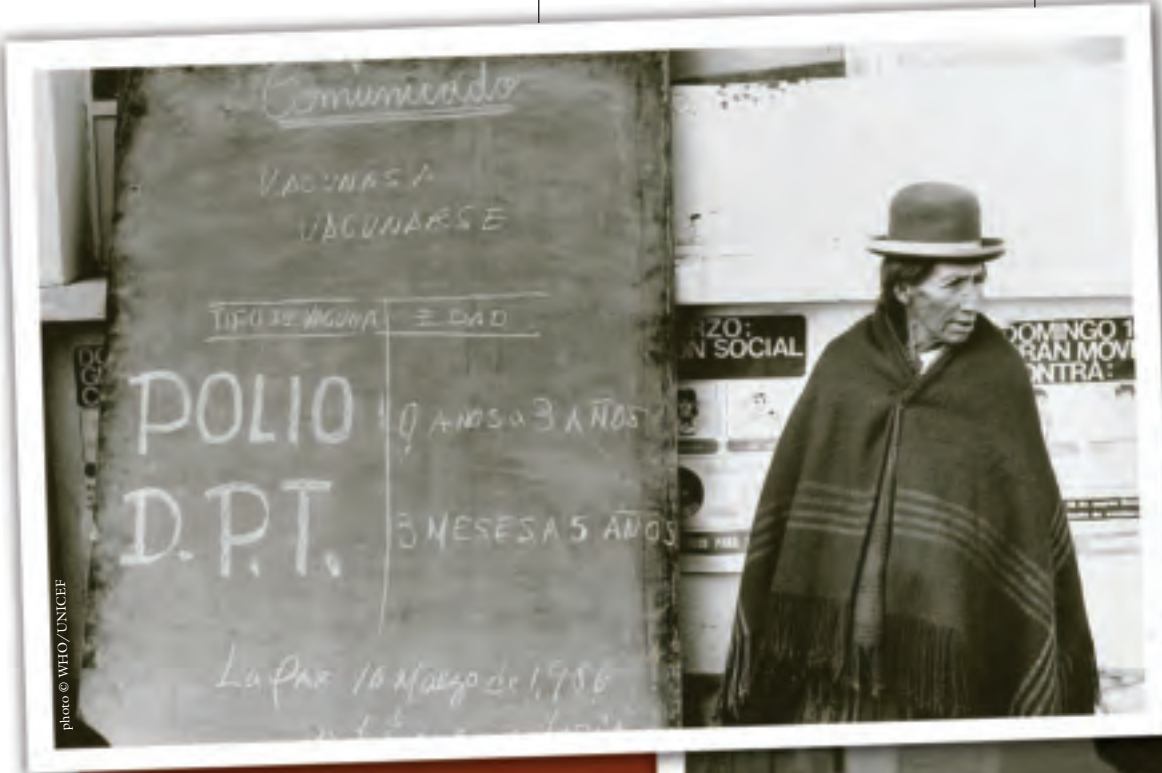 Comunicado
VACUNAS A
VACUNARSE
TIPO DE VACUNA EDAD
POLIO 0 AÑOS a 3 AÑOS
D.P.T. 3 MESES A 5 AÑOS
La Paz 10 Marzo de 1,986
RZO:
N SOCIAL
DOMINGO 1
RAN MOVI
ONTRA:
photo © WHO/UNICEF